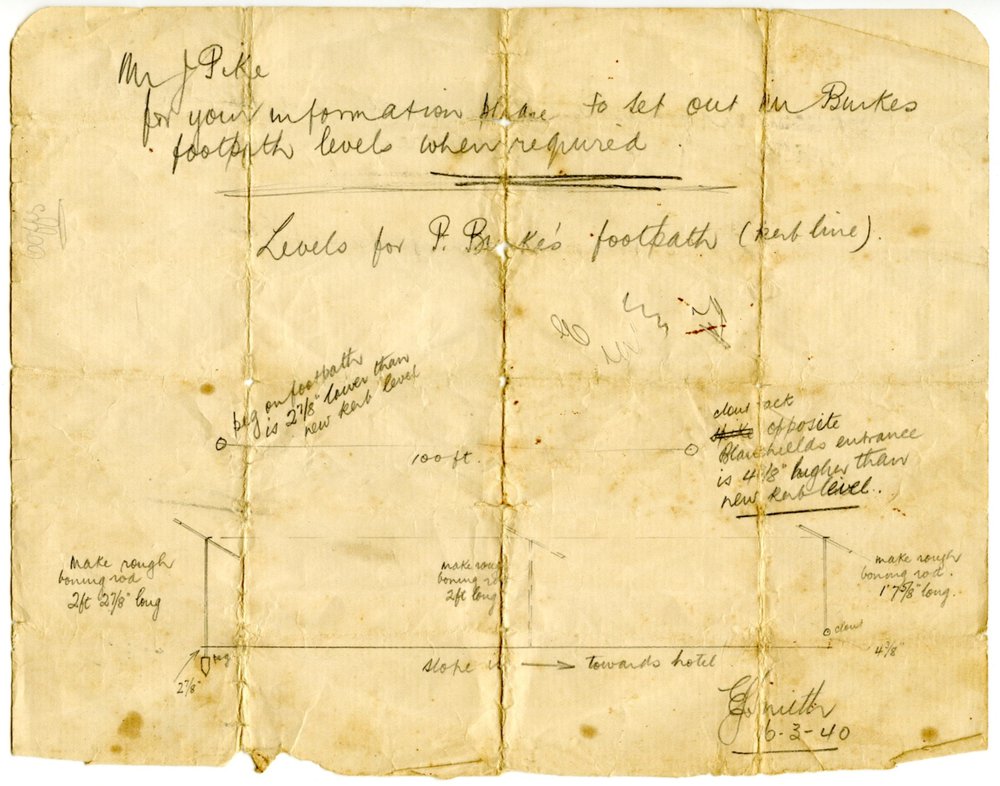 Mr J Pike
for your information please to set out Mr Burkes
footpath levels when required.
Levels for P. Burke's footpath (kerb line).
peg on footpath
is 2 7/8" lower than
new kerb level
100 ft.
clout tack
opposite
Blanshields entrance
is 4 3/8" higher than
new kerb level.
make rough
boning rod
2ft 2 7/8" long
make rough
boning rod
2ft long
make rough
boning rod.
1' 7 5/8" long.
clout
peg
2 7/8"
slope is → towards hotel
4 3/8"
Smith
6-3-40